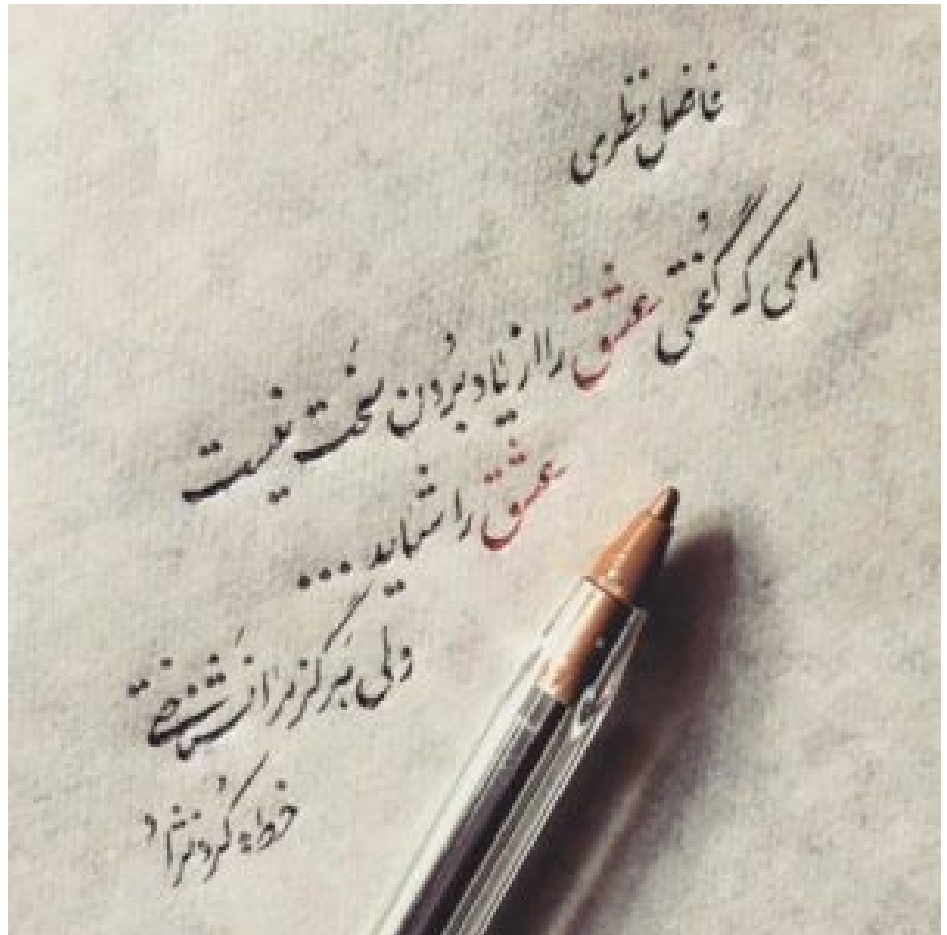 فاضل نظری
ای که گفتی عشق را از یاد بردن سخت نیست
عشق را شاید ...
ولی هرگز مرا نشناختی
خط: کُردنژاد